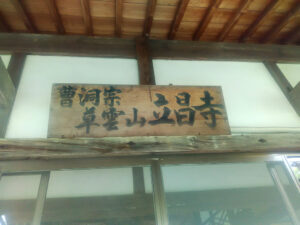 曹洞宗
草雲山立昌寺